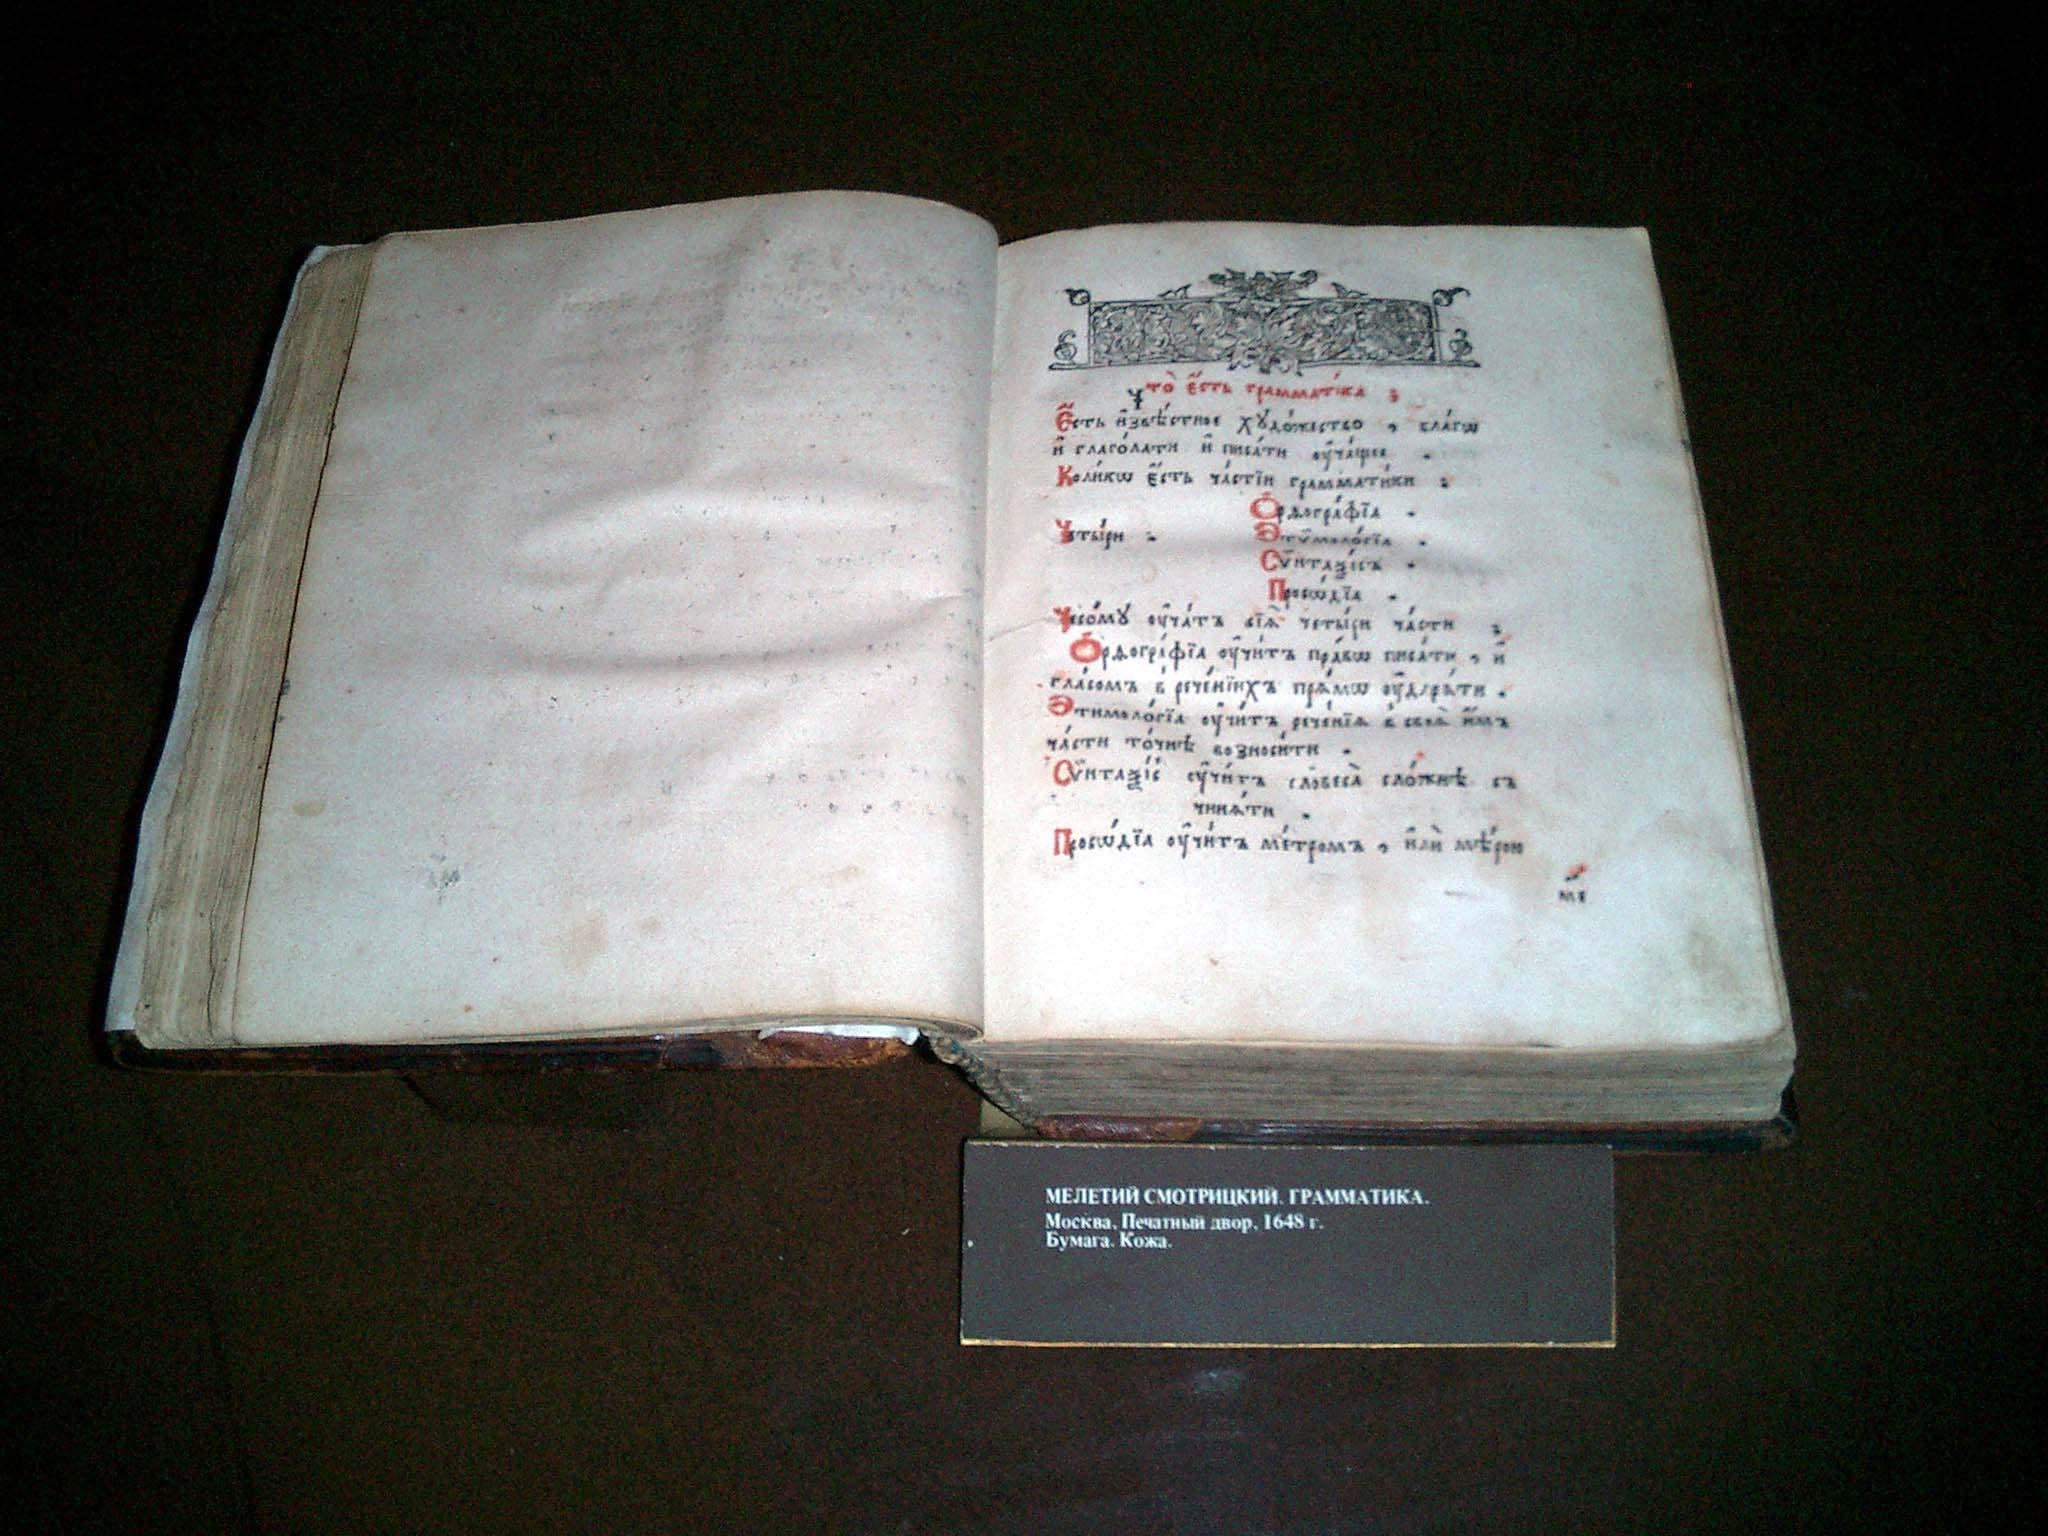 Что̀ є҆́сть грамматі́ка ;
Є҆́сть и҆звѣ́стное хꙋдо́жество , бла́гѡ
и҆ глаго́лати и҆ писа́ти ᲂу҆ча́щее .
Коли́кѡ є҆́сть ча́стїи грамма́ти́ки ;
Ѻ҆рѳогра́фїа .
Четы́ри : Э҆тѷмоло́гїа .
Сѷнта́ѯїсъ .
Просѡ́дїа .
Чесомꙋ̀ ᲂу҆ча́тъ сїѧ̀ четы́ри ча́сти ;
Ѻ҆рѳогра́фїа ᲂу҆чи́тъ пра́вѡ писа́ти , и҆
гла́сомъ в̾ рече́нїихъ прѧ́мѡ ᲂу҆дарѧ́ти .
Э҆тимоло́гїа ᲂу҆чи́тъ рече́нїѧ в̾ своѧ̀ и҆̀мъ
ча́сти то́чнѣ возноси́ти .
Сѷнта́ѯїс̾ ᲂу҆чи́тъ словеса̀ сло́жнѣ съ
чинѧ́ти .
Просѡ́дїа ᲂу҆чи́тъ ме́тромъ , и҆лѝ мѣ́рою
ме
МЕЛЕТИЙ СМОТРИЦКИЙ. ГРАММАТИКА.
Москва, Печатный двор, 1648 г.
Бумага. Кожа.